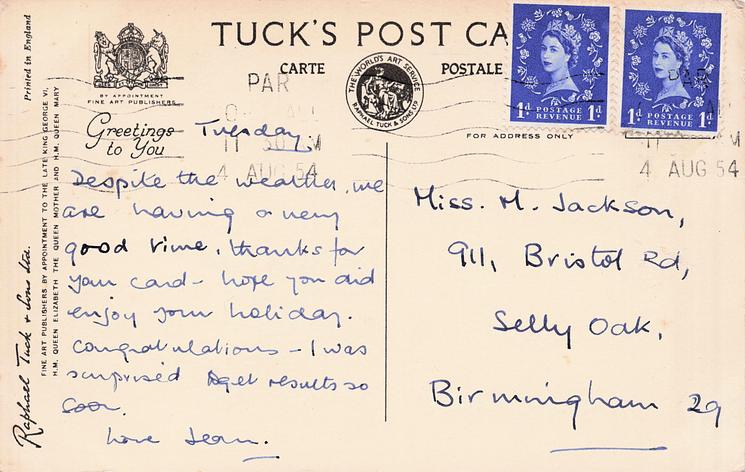 TUCK'S POST CA
CARTE
POSTALE
Printed in England
BY APPOINTMENT
FINE ART PUBLISHERS
THE WORLD'S ART SERVICE
RAPHAEL TUCK & SONS LTD
1d POSTAGE REVENUE 1d
1d POSTAGE REVENUE 1d
PAR
11 30 M
4 AUG 54
PAR
11 M
4 AUG 54
FOR ADDRESS ONLY
Greetings
to You
Raphael Tuck & Sons Ltd.
FINE ART PUBLISHERS BY APPOINTMENT TO THE LATE KING GEORGE VI,
H.M. QUEEN ELIZABETH THE QUEEN MOTHER AND H.M. QUEEN MARY
Tuesday.
Despite the weather, we
are having a very
good time. thanks for
your card - hope you did
enjoy your holiday.
Congratulations - I was
surprised get results so
soon.
Love Jean.
Miss. M. Jackson,
911, Bristol Rd,
Selly Oak,
Birmingham 29